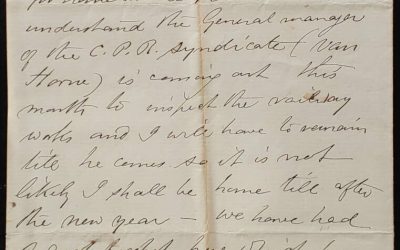 understand the General manager
of the C.P.R. Syndicate (Van
Horne) is coming out this
month to inspect the railway
works and I will have to remain
till he comes so it is not
likely I shall be home till after
the new year – we have had